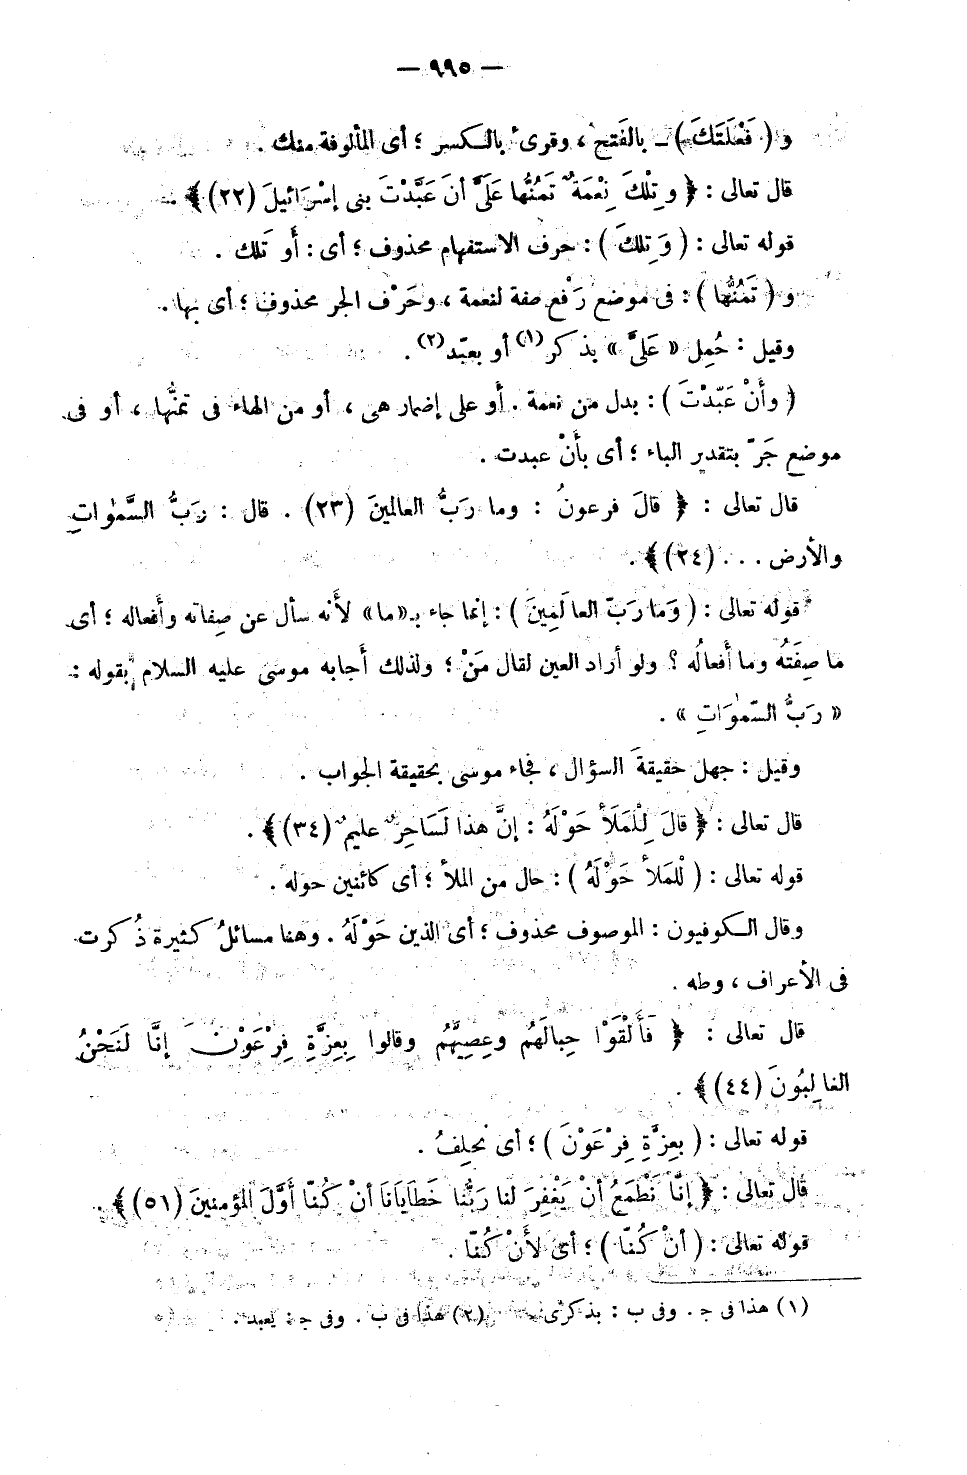 — ٩٩٥ —
و ( فَعْلَتَكَ ) ــ بالفَتح ، وقرىء بالـكسر ؛ أى المألوفة منك .
قال تعالى : ﴿ و تِلْكَ نِعْمَةٌ تَمُنُّها عَلَىَّ أنَ عَبَّدْتَ بنى إسْرَائيلَ (٢٢) ﴾ .
قوله تعالى : ( وَ تِلكَ ) : حرف الاستفهام محذوف ؛ أى : أَو تلك .
و ( تَمُنُّها ) : فى موضع رَفْعٍ صفة لنعمة ، وحَرْف الجر محذوف ؛ أى بها .
وقيل : حُمِل « عَلَىَّ » بذكر(١) أو بعبّد(٢) .
( وأنْ عَبّدْتَ ) : بدل من نعمة . أو على إضمار هى ، أو من الهاء فى تمنُّها ، أو فى
موضع جَرّ بتقدير الباء ؛ أى بأنْ عبدت .
قال تعالى : ﴿ قالَ فرعونُ : وما رَبُّ العالمينَ (٢٣) . قال : رَبُّ السَّمٰواتِ
والأرض ... (٢٤) ﴾ .
قوله تعالى : ( وَما رَبّ العالَمِينَ ) : إنما جاء بـ«ما» لأَنه سأل عن صِفاته وأَفعاله ؛ أى
ما صِفَتُه وما أَفعالُه ؟ ولو أراد العين لقال مَنْ ؛ ولذلك أَجابه موسى عليه السلام بقوله :
« رَبُّ السّمٰوَاتِ » .
وقيل : جهل حقيقةَ السؤال ، فجاء موسى بحقيقة الجواب .
قال تعالى : ﴿ قالَ لِلْمَلَأ حَوْلَهُ : إنَّ هذا لَسَاحِرٌ عليمٌ (٣٤) ﴾ .
قوله تعالى : ( لْلمَلأ حَوْلَهُ ) : حال من الملأ ؛ أى كائنين حوله .
وقال الـكوفيون : الموصوف محذوف ؛ أى الذين حَوْلَهُ . وهنا مسائلُ كثيرة ذُكرت
فى الأعراف ، وطه .
قال تعالى : ﴿ فَأَلْقَوْا حِبالَهُم وعِصِيَّهُم وقالوا بِعِزَّةِ فِرْعَوْنَ إنَّا لَنَحْنُ
الغالِبُونَ (٤٤) ﴾ .
قوله تعالى : ( بعِزَّةِ فِرْعَوْنَ ) ؛ أى نحلِفُ .
قال تعالى : ﴿ إنَّا نَطْمَعُ أنْ يَغْفِرَ لنا رَبُّنا خَطَايَانَا أنْ كُنّا أَوَّلَ المؤمنينَ (٥١) ﴾ .
قوله تعالى : ( أنْ كُنّا ) ؛ أى لأَنْ كُنّا .
(١) هذا فى جـ . وفى ب : بذكرى . (٢) هذا فى ب . وفى جـ : يعبد .